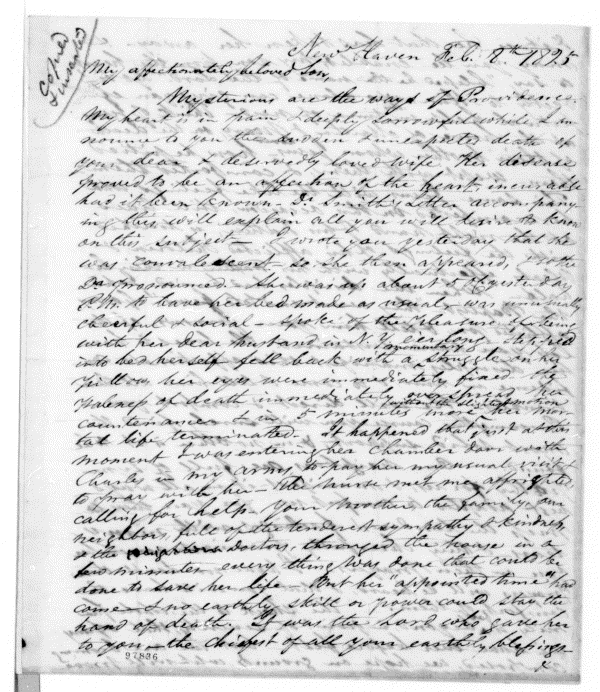 Copied
& inserted
New Haven Feb. 8th 1825
My affectionately beloved Son,
Mysterious are the ways of Providence.
My heart is in pain & deeply sorrowful while I an-
nounce to you the sudden & unexpected death of
your dear & deservedly loved wife. Her disease
proved to be an affection of the heart, incurable
had it been known. Dr. Smith's letter accompany-
ing this will explain all you will desire to know
on this subject. I wrote you yesterday that she
was convalescent so she then appeared, & so the
Dr pronounced. She was up about 5 o'clk yesterday
P.M. to have her bed made as usual, was unusually
cheerful & social - spoke of the pleasure of being
with her dear husband in N. Y. ere long. Stepped
into bed herself fell back with a momentary struggle on her
pillow, her eyes were immediately fixed, the
paleness of death immediately overspread her
countenance & in 5 minutes more without the slightest motion her mor-
tal life terminated. It happened that just at this
moment I was entering her chamber door with
Charles in my arms, to pay her my usual visit &
to pray with her - the nurse met me affrighted
calling for help. Your Mother, the family, our
neighbors, full of the tenderest sympathy & kindness
& the doctors, thronged the house in a
few minutes every thing was done that could be
done to save her life. But her "appointed time" had
come & no earthly skill or power could stay the
hand of death. It was the Lord who gave her
to you - the chiefest of all your earthly blessings
&
97836